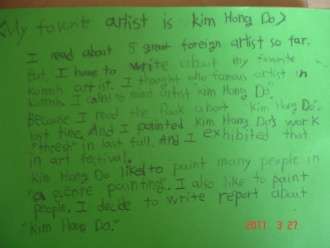 <My favorite artist is Kim Hong Do>
I read about 5 great foreign artist so far.
But I have to write about my favorite
korean artist. I thought who famous artist in
korean. I called to mind artist "kim Hong Do".
Because I read the book about "kim Hong Do"
last time. And I painted kim Hong Do's work
"thresh" in last fall. And I exhibited that
in art festival.
kim Hong Do liked to paint many people in
"a genre painting". I also like to paint
people. I decide to write report about
"kim Hong Do."
2011 3 27